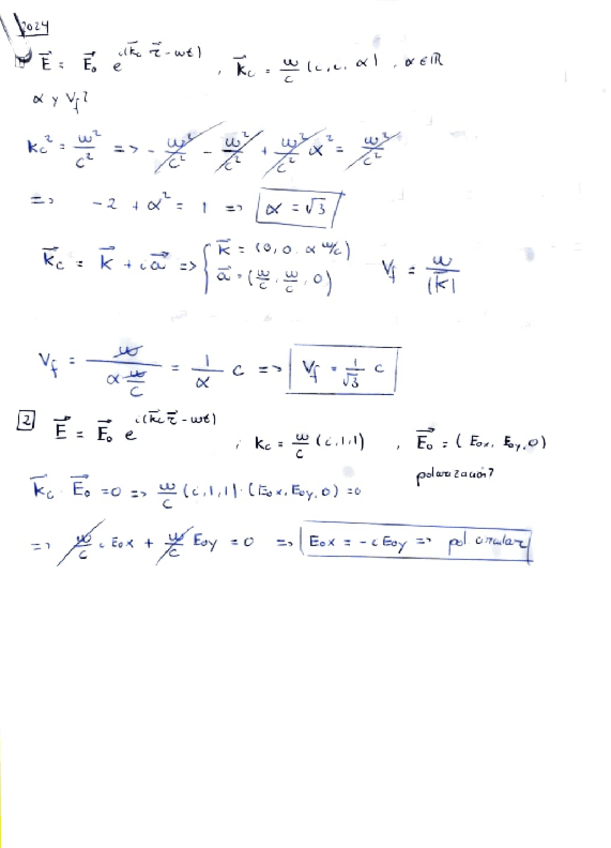 2024
1 E⃗ = E⃗₀ e^{i(k⃗c r⃗ - ωt)} , k⃗c = ω/c (i, i, α) , α ∈ ℝ
α y Vf?
kc² = ω²/c² => - ω²/c² - ω²/c² + ω²/c² α² = ω²/c²
=> -2 + α² = 1 => α = √3
k⃗c = k⃗ + i a⃗ => { k⃗ = (0, 0, α ω/c) a⃗ = (ω/c, ω/c, 0) Vf = ω/|k⃗|
Vf = ω/(α ω/c) = 1/α c => Vf = 1/√3 c
2 E⃗ = E⃗₀ e^{i(k⃗c r⃗ - ωt)} , kc = ω/c (i, 1, 1) , E⃗₀ = (E₀x, E₀y, 0)
polarización?
k⃗c · E⃗₀ = 0 => ω/c (i, 1, 1) · (E₀x, E₀y, 0) = 0
=> ω/c i E₀x + ω/c E₀y = 0 => E₀x = -i E₀y => pol circular